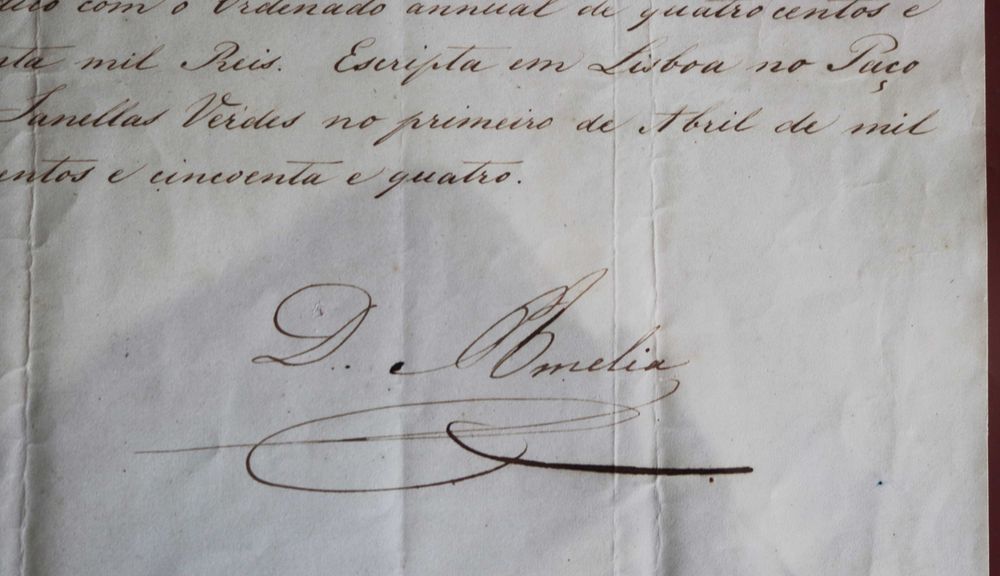 dico com o Ordenado annual de quatro centos e
nta mil Reis. Escripta em Lisboa no Paço
Janellas Verdes no primeiro de Abril de mil
entos e cincoenta e quatro.
D. Amelia